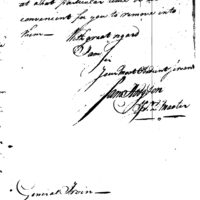 at that particular time
convenient for you to remove into
them —
With great regard
I am
Sir
Your Most Obedient Servant
Sam Hodgdon
Master
General Irvin